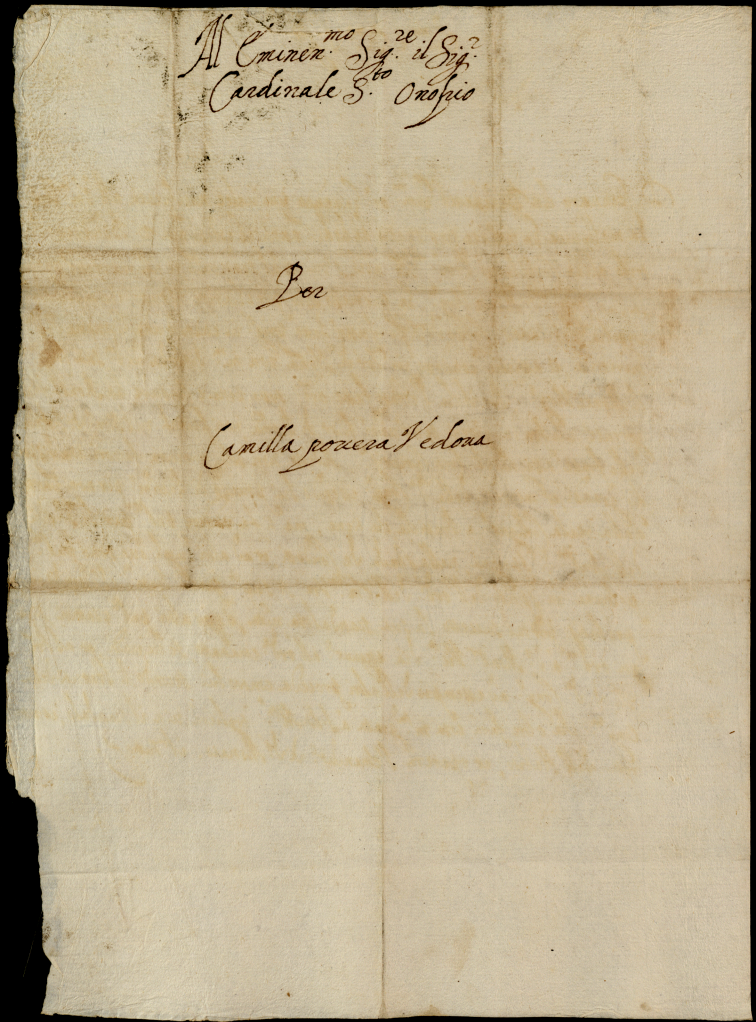 Al Eminen.mo Sig.re il Sig.r
Cardinale S.to Onofrio
Per
Camilla pouera Vedoua